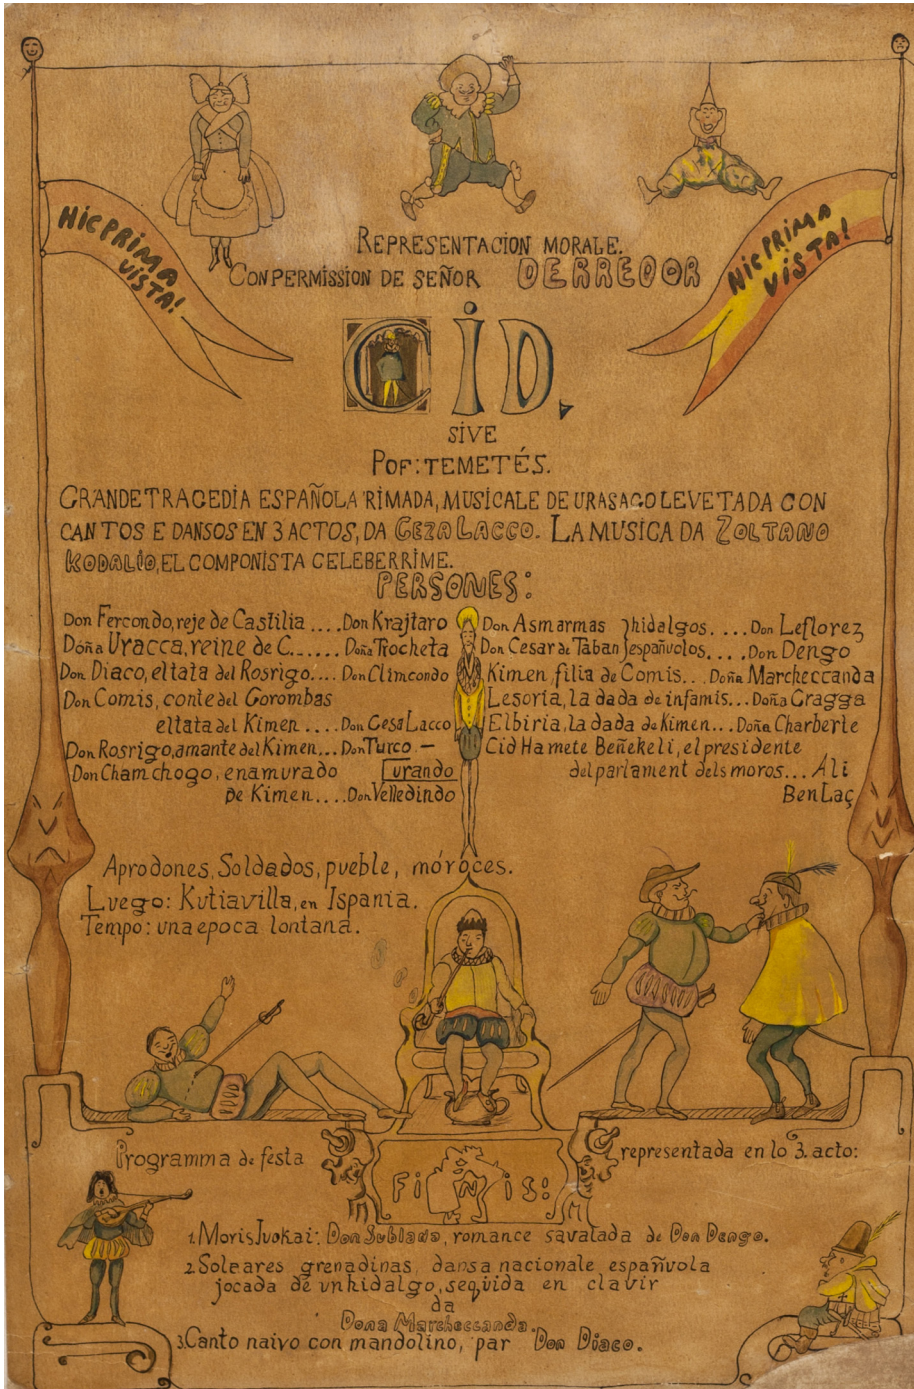 HIC PRIMA
VISTA!
HIC PRIMA
VISTA!
REPRESENTACION MORALE.
CON PERMISSION DE SEÑOR DERREDOR
CID,
SIVE
POF:TEMETÉS.
GRANDE TRAGEDIA ESPAÑOLA RIMADA, MUSICALE DE URASAGO LEVETADA CON
CANTOS E DANSOS EN 3 ACTOS, DA GEZA LACCO. LA MUSICA DA ZOLTANO
KODALIO, EL COMPONISTA CELEBERRIME.
PERSONES:
Don Fercondo, reje de Castilia .... Don Krajtaro
Doña Uracca, reine de C....... Doña Trocheta
Don Diaco, eltata del Rosrigo.... Don Climcondo
Don Comis, conte del Gorombas
eltata del Kimen .... Don Gesa Lacco
Don Rosrigo, amante del Kimen... Don Turco. —
Don Chamchogo, enamurado Turando
De Kimen.... Don Velledindo
Don Asmarmas } hidalgos. .... Don Leflorez
Don Cesar de Taban } españuolos. ... Don Dengo
Kimen, filia de Comis... Doña Marcheccanda
Lesoria, la dada de infamis... Doña Gragga
Elbiria, la dada de Kimen... Doña Charberle
Cid Hamete Beñekeli, el presidente
del parlament dels moros... Ali
Ben Laç
Aprodones, Soldados, pueble, móroces.
Luego: Kutiavilla, en Ispania.
Tempo: una epoca lontana.
Programma de festa
representada en lo 3. acto:
FiNis:
1. Moris Juokai: Don Soblado, romance savalada de Don Dengo.
2. Soleares grenadinas, dansa nacionale españuola
jocada de un hidalgo, seqvida en clavir
da
Dona Marcheccanda.
3. Canto naivo con mandolino, par Don Diaco.